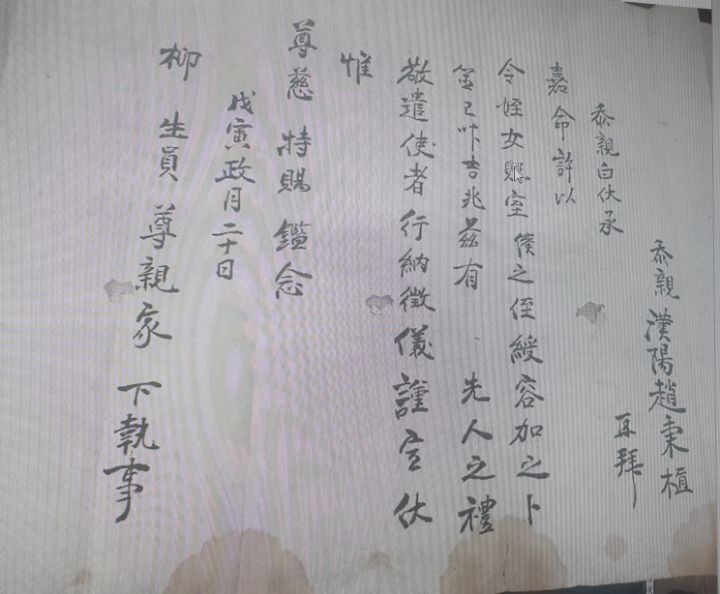 忝親 漢陽趙秉植
再拜
忝親白伏承
嘉命許以
令姪女貺室 僕之侄緩容加之卜
筮已叶吉兆玆有 先人之禮
敬遣使者行納徵儀謹宣伏
惟
尊慈 特賜 鑑念
戊寅政月二十日
柳 生員 尊親家 下執事